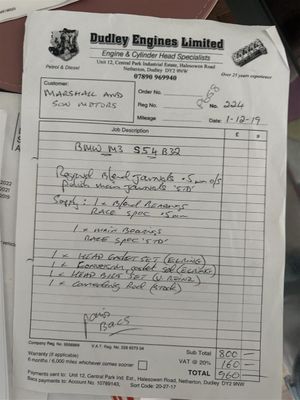 Dudley Engines Limited
Engine & Cylinder Head Specialists
Unit 12, Central Park Industrial Estate, Halesowen Road
Netherton, Dudley DY2 9NW
Petrol & Diesel
07890 969940
Over 25 years experience
Customer:
MARSHALL AND
SON MOTORS
Order No.
Reg No.
Mileage
No. 224
Date: 1-12-19
Job Description
£
BMW M3 S54B32
Journals .5mm o/s
Polish main Journals 'STD'
Supply: 1 x Bearings
RACE SPEC .5mm
1 x MAIN Bearings
RACE SPEC 'STD'
1 x HEAD Gasket SET (ELRING)
1 x gasket Set (ELRING)
1 x HEAD Bolt SET
1 x Rod (Stock)
Bacs
Company Reg No.
V.A.T. Reg No.
Warranty (if applicable)
6 months / 6,000 miles whichever comes sooner
Sub Total 800 —
VAT @ 20% 160 —
TOTAL 960 —
Payments sent to: Unit 12, Central Park Ind. Est., Halesowen Road, Netherton, Dudley DY2 9NW
Bacs payments to: Account No. 10789143, Sort Code: 20-27-17
2022
2021